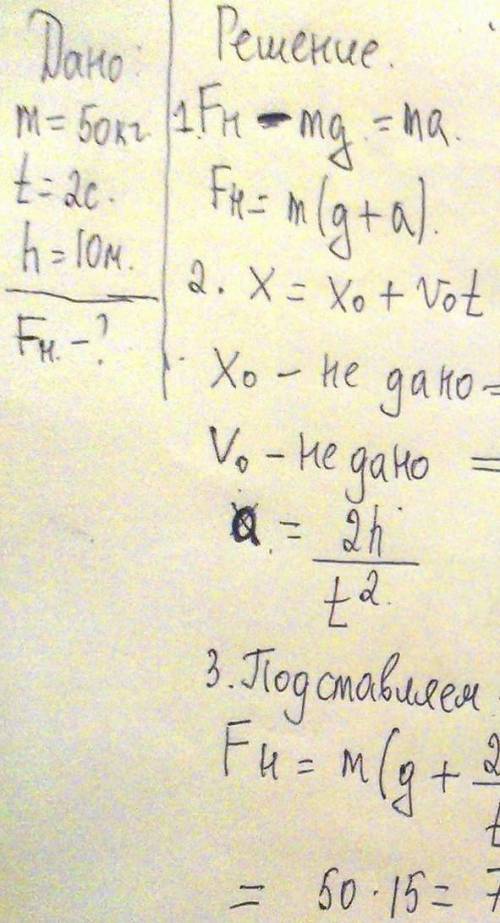 Дано:
m = 50кг.
t = 2с.
h = 10м.
Fн. - ?
Решение.
1. Fн - mg = ma.
Fн = m(g + a).
2. X = X₀ + V₀t
X₀ - не дано =
V₀ - не дано =
a = 2h / t².
3. Подставляем
Fн = m(g + 2 / t
= 50 · 15 = 7